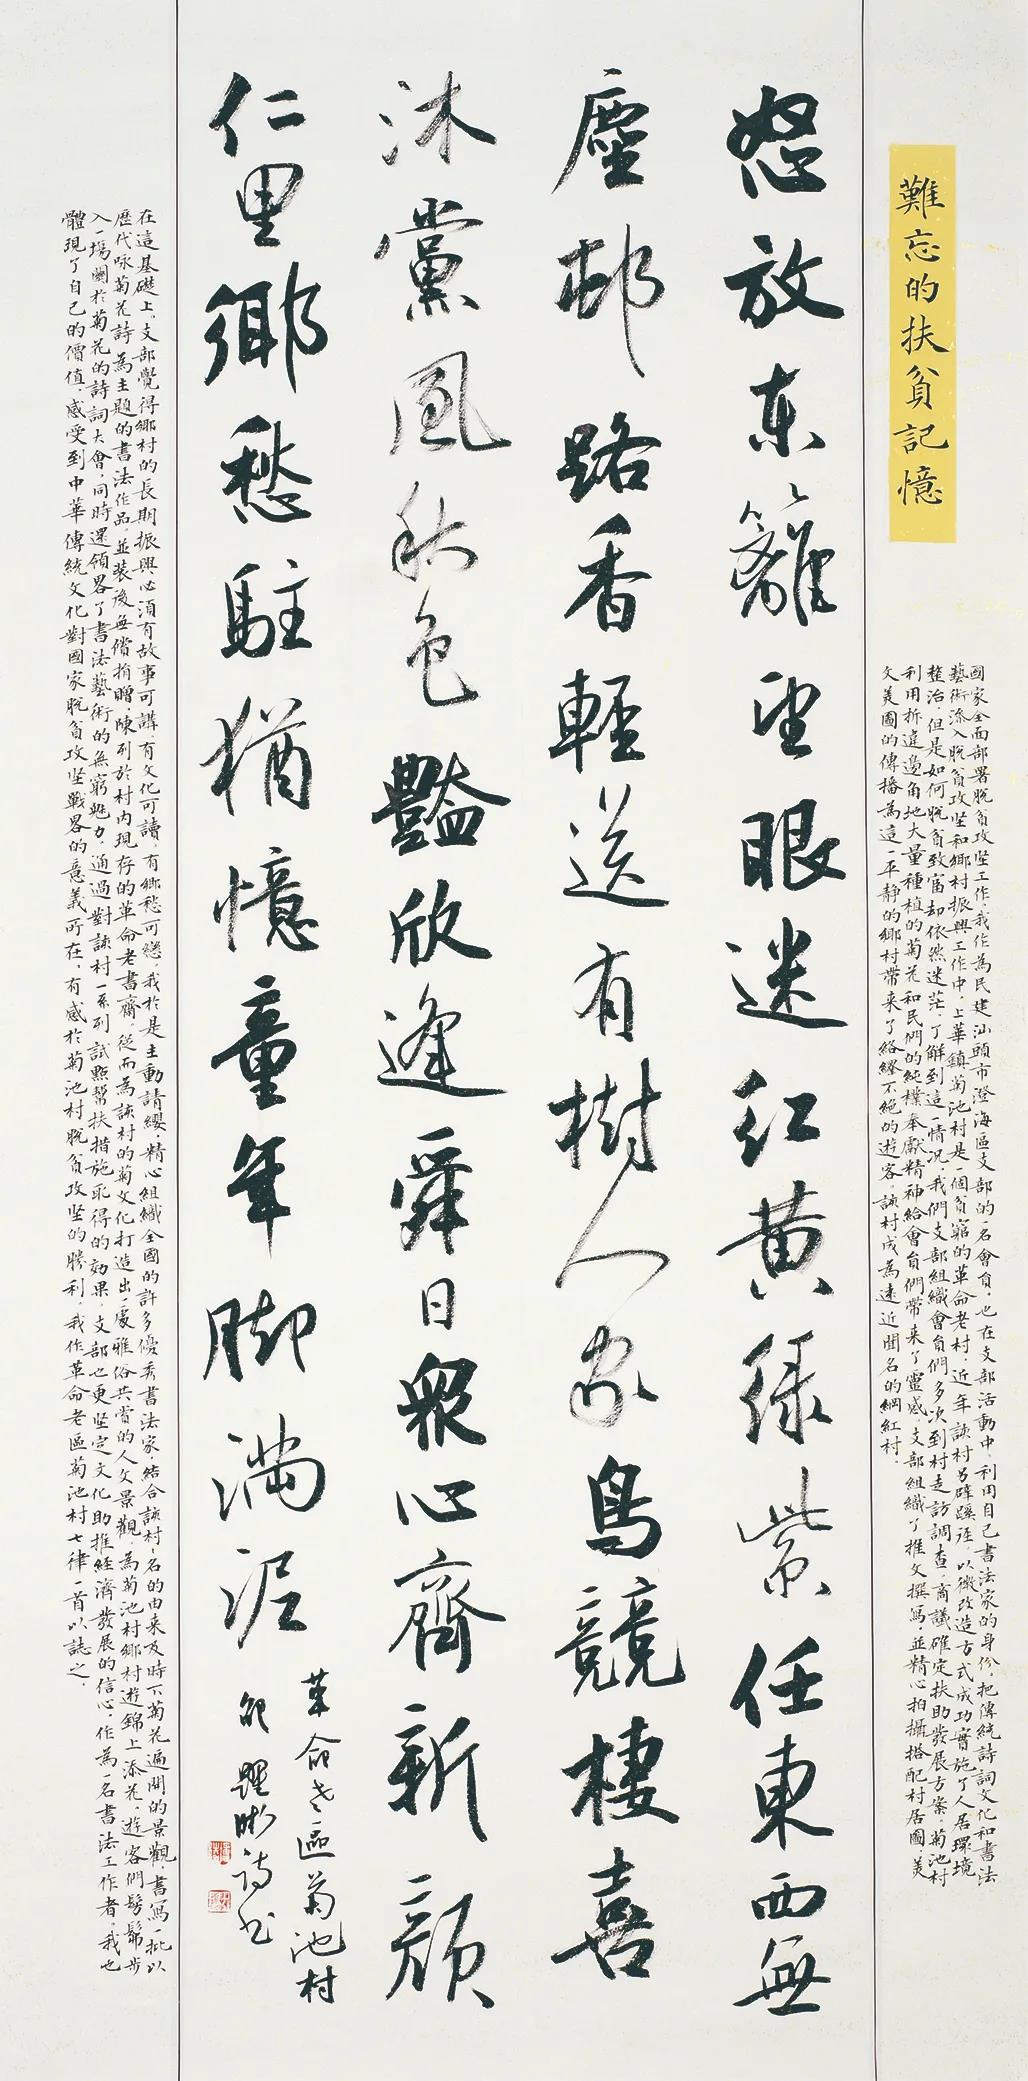 難忘的扶貧記憶
國家全面部署脫貧攻堅工作，我作為民建汕頭市澄海區支部的一名會員，也在支部活動中，利用自己書法家的身份，把傳統詩詞文化和書法
藝術添入脫貧攻堅和鄉村振興工作中，上華鎮菊池村是一個貧窮的革命老村，近年該村另辟蹊逕，以微改造方式成功實施了人居環境
整治，但是如何脫貧致富却依然迷茫，了解到這一情況，我們支部組織會員們多次到村走訪調查，商議確定扶助發展方案，菊池村
利用拆違邊角地大量種植的菊花和民們的純樸奉獻精神給會員們帶來了靈感，支部組織了推文撰寫，並精心拍攝搭配村居圖，美
文美圖的傳播為這一平靜的鄉村帶來了絡繹不絕的遊客，該村成為遠近聞名的網紅村．
怒放東籬望眼迷紅黃綠紫任東西無
塵邨路香輕送有樹人家鳥競棲喜
沐黨風秋色豔欣逢舜日眾心齊新顏
仁里鄉愁駐猶憶童年腳滿泥
革命老區菊池村
躍彬詩書
在這基礎上，支部覺得鄉村的長期振興必須有故事可講，有文化可讀，有鄉愁可戀，我於是主動請纓，精心組織全國的許多優秀書法家，結合該村名的由來及時下菊花遍開的景觀，書寫一批以
歷代咏菊花詩為主題的書法作品，並裝後無償捐贈，陳列於村內現存的革命老書齋，從而為該村的菊文化打造出一處雅俗共賞的人文景觀，為菊池村鄉村遊錦上添花，遊客們髣髴步
入一場關於菊花的詩詞大會，同時還領畧了書法藝術的無窮魅力，通過對該村一系列試點幫扶措施取得的効果，支部也更堅定文化助推經濟發展的信心，作為一名書法工作者，我也
體現了自己的價值，感受到中華傳統文化對國家脫貧攻堅戰畧的意義所在，有感於菊池村脫貧攻堅的勝利，我作革命老區菊池村七律一首以誌之．